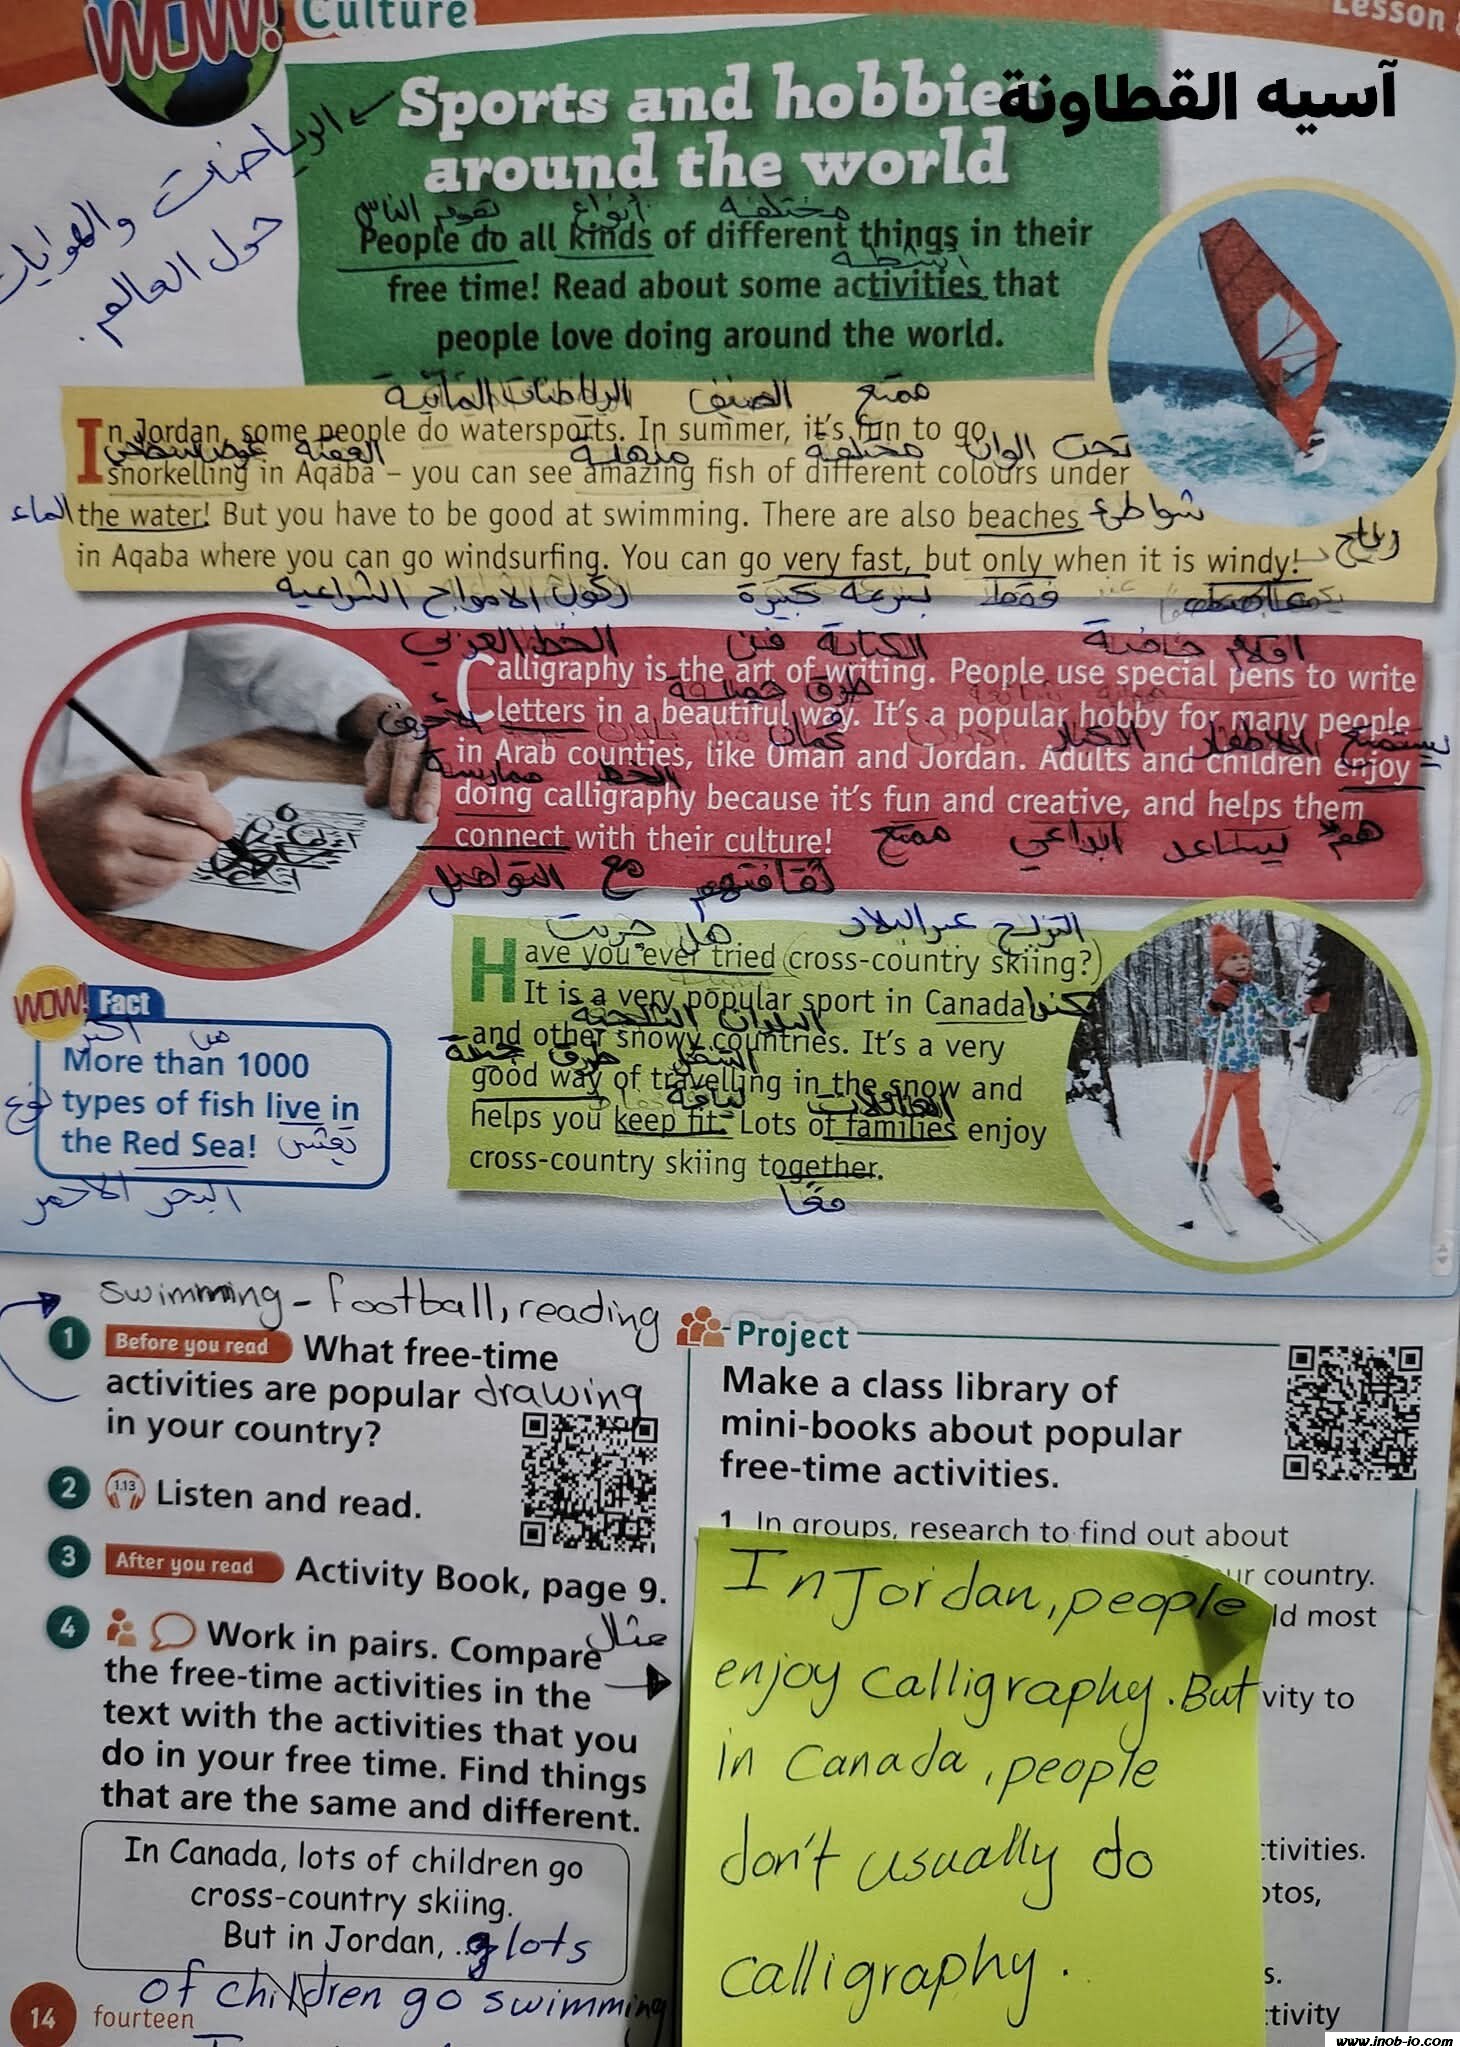 WOW! Culture
Lesson
آسيه القطاونة
Sports and hobbies
around the world
الرياضات والهوايات
حول العالم.
تقوم الناس أنواع مختلفة
People do all kinds of different things in their
أنشطة
free time! Read about some activities that
people love doing around the world.
الرياضات المائية الصيف ممتع
In Jordan, some people do watersports. In summer, it's fun to go
العقبة مذهلة مختلفة الوان تحت
snorkelling in Aqaba – you can see amazing fish of different colours under
الماء
the water! But you have to be good at swimming. There are also beaches
شواطئ
in Aqaba where you can go windsurfing. You can go very fast, but only when it is windy!
رياح
ركوب الامواج الشراعية بسرعة كبيرة فقط
الخط العربي فن الكتابة اقلام خاصة
Calligraphy is the art of writing. People use special pens to write
طرق جميلة
letters in a beautiful way. It's a popular hobby for many people
الأحرف عُمان الكبار الاطفال يستمتع
in Arab counties, like Oman and Jordan. Adults and children enjoy
ممارسة الخط
doing calligraphy because it's fun and creative, and helps them
connect with their culture!
ممتع ابداعي يساعد هم
التواصل مع ثقافتهم
هل جربت التزلج عبر البلاد
Have you ever tried (cross-country skiing?)
It is a very popular sport in Canada
كندا
البلدان الثلجية
and other snowy countries. It's a very
طرق جيدة
good way of travelling in the snow and
لياقة العائلات
helps you keep fit. Lots of families enjoy
cross-country skiing together.
معًا
WOW! Fact
أكثر من
More than 1000
نوع
types of fish live in
the Red Sea!
تعيش
البحر الاحمر
swimming - football, reading
1 Before you read What free-time
activities are popular drawing
in your country?
2 1.13 Listen and read.
3 After you read Activity Book, page 9.
4 Work in pairs. Compare
مثال
the free-time activities in the
text with the activities that you
do in your free time. Find things
that are the same and different.
In Canada, lots of children go
cross-country skiing.
But in Jordan, ... lots
of children go swimming
14 fourteen
Project
Make a class library of
mini-books about popular
free-time activities.
1 In groups, research to find out about
country.
most
In Jordan, people
enjoy calligraphy. But
to
in Canada, people
don't usually do
calligraphy.
www.jnob-jo.com